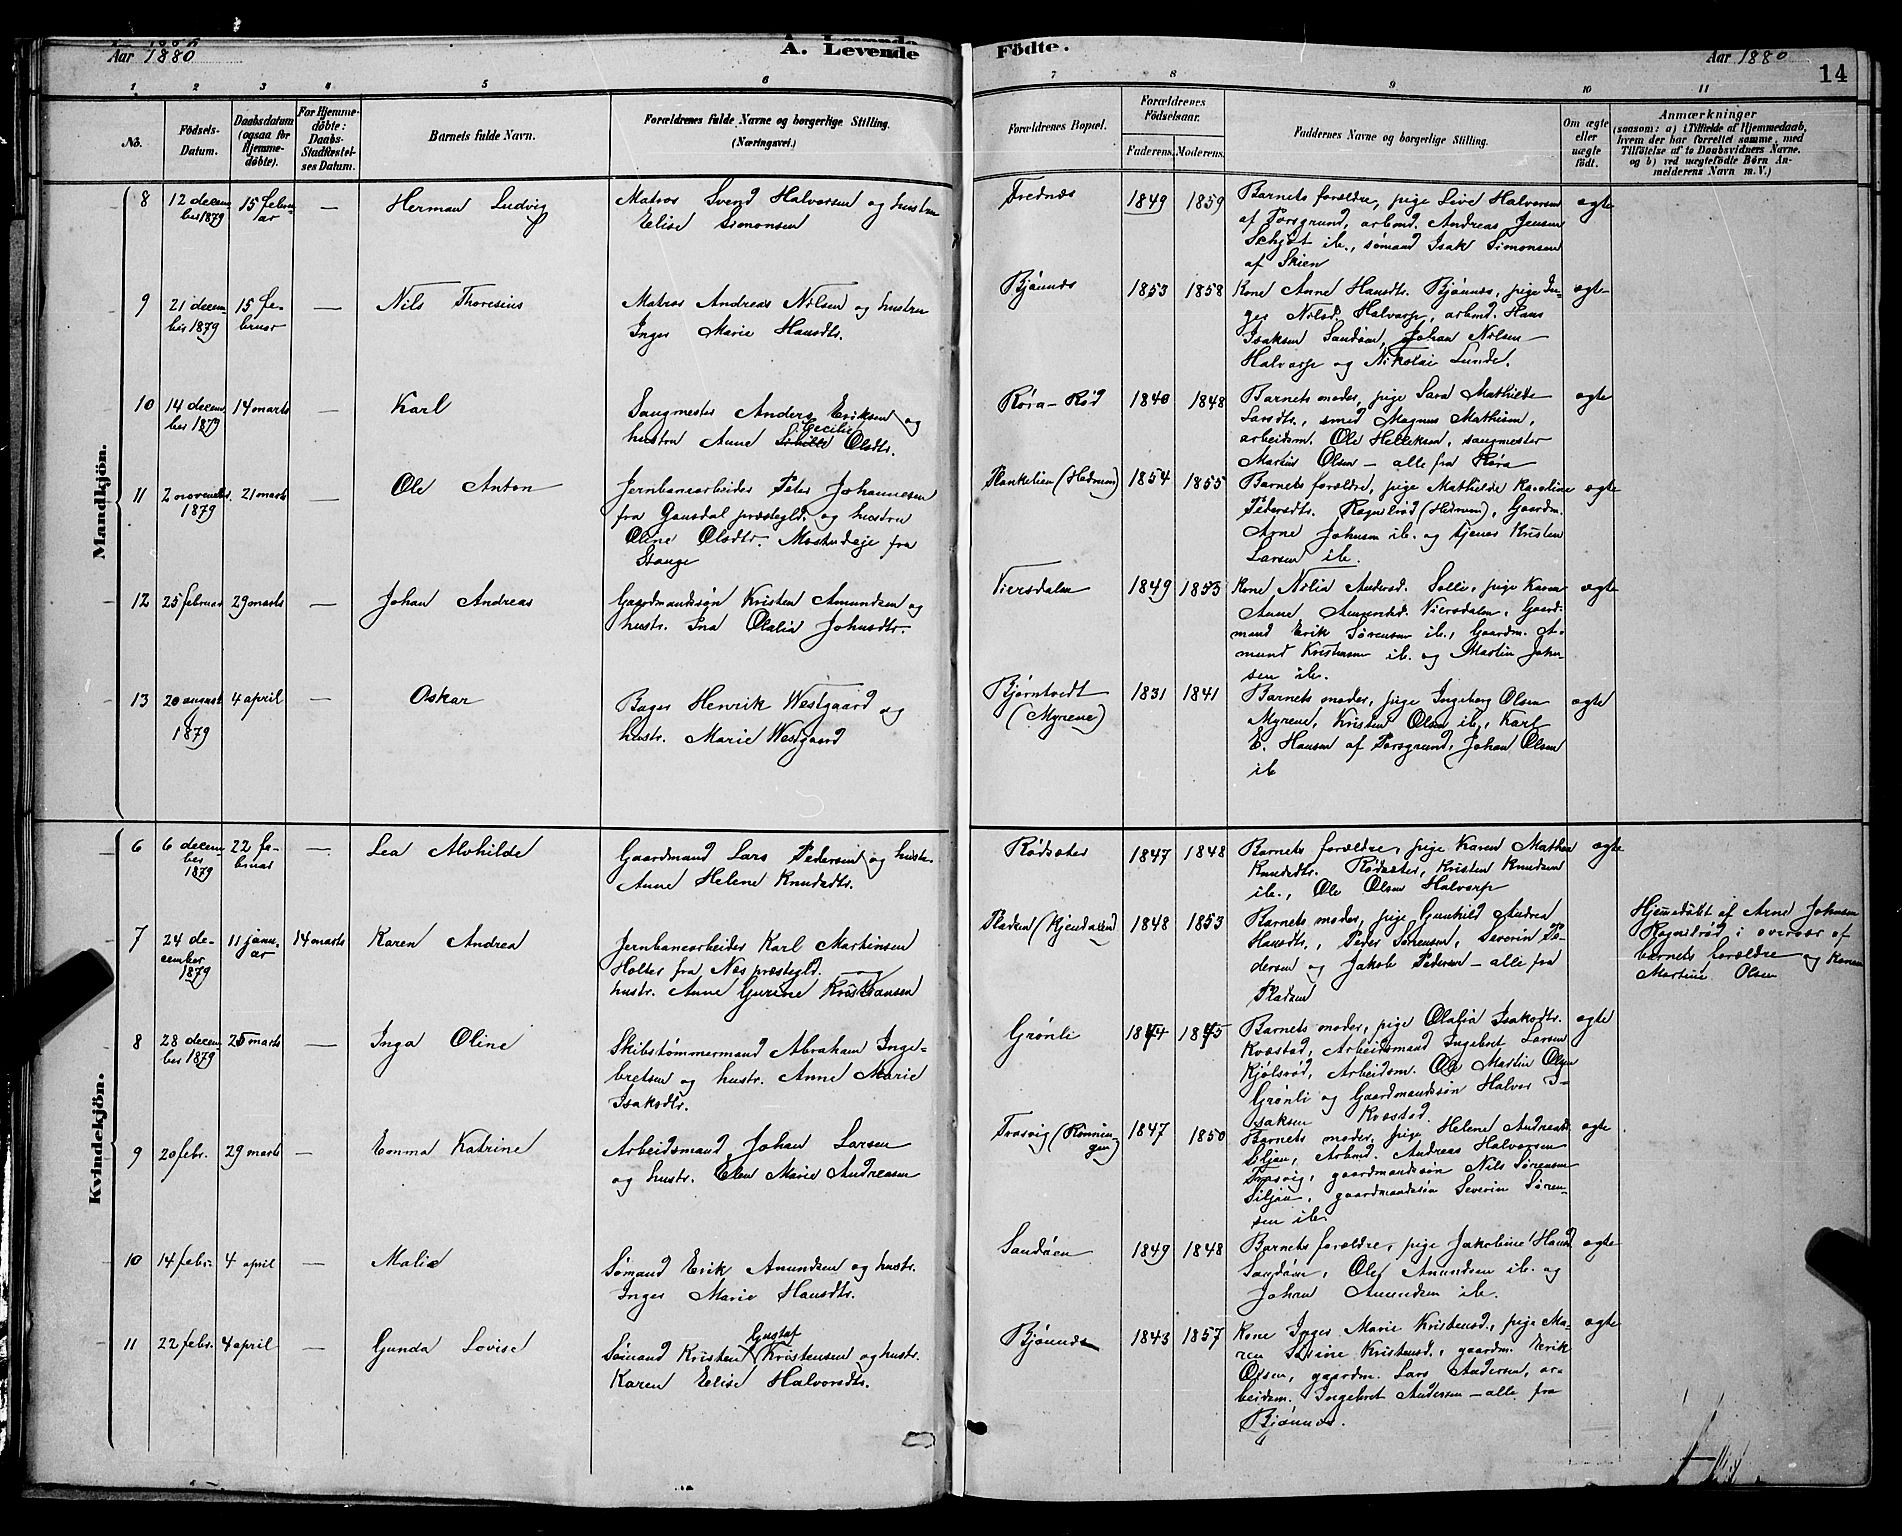 Aar 1880
A. Levende
Födte.
Aar 1880
14
1 2 3 4 5 6 7 8 9 10 11
No.
Födsels-
Datum.
Daabsdatum
(ogsaa for
Hjemme-
döbte).
For Hjemme-
döbte:
Daabs-
Stadfæstel-
ses Datum.
Barnets fulde Navn.
Forældrenes fulde Navne og borgerlige Stilling.
(Næringsvei.)
Forældrenes Bopæl.
Forældrenes
Födselsaar.
Faderens. Moderens.
Faddernes Navne og borgerlige Stilling.
Om ægte
eller
uægte
födt.
Anmærkninger
(saasom: a) i Tilfælde af Hjemmedaab,
hvem der har forrettet samme, med
Tilföielse af to Daabsvidners Navne,
og b) ved uægtefödte Börn An-
melderens Navn m. V.)
Mandkjön.
8
12 decem-
ber 1879
15 febru-
ar
—
Herman Ludvig
Matros Svend Halvorsen og hustru
Elise Simonsen
Frednæs
1849 1859
Barnets forældre, pige Live Halvorsen
af Porsgrund, arbmd. Andreas Jensen
Schjöt ib., sømand Isak Simonsen
af Skien
ægte
9
21 decem-
ber 1879
15 fe-
bruar
—
Nils Thoresius
Matros Andreas Nilsen og hustru
Inger Marie Hansdtr.
Bjønnes
1853 1858
Kone Anne Hansdtr. Bjønnes, pige In-
ger Nilsd. Halvarp, arbmd. Hans
Isaksen Sandøen, Johan Nilsen
Halvarp og Nikolai Lunde.
ægte
10
14 decem-
ber 1879
14 marts
—
Karl
Saugmester Anders Eriksen og
Cecilie
hustru Anne Olsdtr.
Røra-Rød
1840 1848
Barnets moder, pige Sara Mathilde
Larsdtr., smed Magnus Mathisen,
arbeidsm. Ole Helleksen, saugmester
Martin Olsen — alle fra Røra
ægte
11
2 novembr.
1879
21 marts
—
Ole Anton
Jernbanearbeider Peter Johannesen
fra Gausdal præstegld. og hustru
Oline Olsdtr. Mostueeje fra
Stange
Plankelien (Hedrum)
1854 1855
Barnets forældre, pige Mathilde Karoline
Pedersdtr. Ragnelrød (Hedrum), Gaardm.
Arne Johnsen ib. og tjener Kristen
Larsen ib.
ægte
12
25 februar
29 marts
—
Johan Andreas
Gaardmandssøn Kristen Amundsen og
hustr. Ina Olalia Johnsdtr.
Viersdalen
1849 1853
Kone Nilia Andersd. Solli, pige Karen
Anne Amundsd. Viersdalen, Gaard-
mand Erik Sørensen ib., Gaardm. A-
mund Kristensen ib. og Martin John-
sen ib.
ægte
13
20 august
1879
4 april
—
Oskar
Bager Henrik Westgaard og
hustr. Marie Westgaard
Bjørntvedt
(Myrene)
1831 1841
Barnets moder, pige Ingeborg Olsen
Myrene, Kristen Olsen ib., Karl
E. Hansen af Porsgrund, Johan Olsen
ib
ægte
Kvindekjön.
6
6 decem-
ber
1879
22 fe-
bruar
—
Lea Alvhilde
Gaardmand Lars Pedersen og hustr.
Anne Helene Knudsdtr.
Rødsæter
1847 1848
Barnets forældre, pige Karen Mathea
Knudsdtr. Rødsæter, Kristen Knudsen
ib., Ole Olsen Halvarp
ægte
7
24 de-
cember
1879
11 janu-
ar
14 marts
Karen Andrea
Jernbanearbeider Karl Martinsen
Holter fra Næs præstegld. og
hustr. Anne Gurine Kristiansen
Pladsen (Kjendalen)
1848 1853
Barnets moder, pige Gunhild Andrea
Hansdtr., Peder Sørensen, Severin Pe-
dersen og Jakob Pedersen — alle fra
Pladsen
Hjemmedøbt af Arne Johnsen
Ragnelrød i overvær af
barnets forældre og konen
Martine Olsen
8
28 decem-
ber 1879
25 marts
—
Inga Oline
Skibstømmermand Abraham Inge-
bretsen og hustr. Anne Marie
Isaksdtr.
Grønli
1844 1845
Barnets moder, pige Olalia Isaksdtr.
Kvæstad, Arbeidsmand Ingebret Larsen
Kjølsrød, Arbeidsm. Ole Martin Olsen
Grønli og Gaardmandssøn Halvor I-
saksen Kvæstad.
ægte
9
20 febr.
29 marts
—
Emma Katrine
Arbeidsmand Johan Larsen
og hustr. Elen Marie Andreasen
Trosvig (Rønnin-
gen)
1847 1850
Barnets moder, pige Helene Andreasd.
Siljan, Arbmd. Andreas Halvorsen
Trosvig, gaardmandssøn Nils Sørensen
Siljan, gaardmandssøn Severin Søren-
sen ib.
ægte
10
14 febr.
4 april
—
Malie
Sømand Erik Amundsen og hustr.
Inger Marie Hansdtr.
Sandøen
1849 1848
Barnets forældre, pige Jakobine Hansd.
Sandøen, Olef Amundsen ib. og
Johan Amundsen ib.
ægte
11
22 febr.
4 april
—
Gunda Lovise
Gustaf
Sømand Kristen Kristensen og hustr.
Karen Elise Halvorsdtr.
Bjønnes
1843 1857
Kone Inger Marie Kristensd., pige Ma-
ren Sørine Kristensd., gaardm. Erik
Olsen, gaardm. Lars Andersen, ar-
beidsm. Ingebret Andersen — alle fra
Bjønnes.
ægte